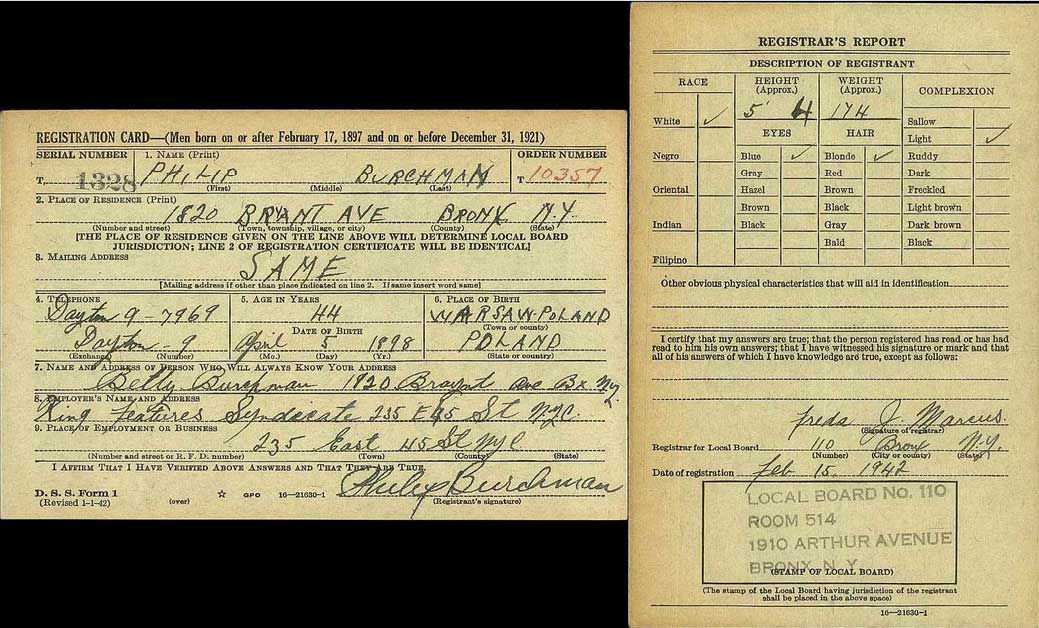 REGISTRATION CARD—(Men born on or after February 17, 1897 and on or before December 31, 1921)
SERIAL NUMBER 1. NAME (Print) ORDER NUMBER
T 1328 PHILIP BURCHMAN T 10357
(First) (Middle) (Last)
2. PLACE OF RESIDENCE (Print)
1820 BRYANT AVE BRONX N.Y.
(Number and street) (Town, township, village, or city) (County) (State)
[THE PLACE OF RESIDENCE GIVEN ON THE LINE ABOVE WILL DETERMINE LOCAL BOARD
JURISDICTION; LINE 2 OF REGISTRATION CERTIFICATE WILL BE IDENTICAL]
3. MAILING ADDRESS
SAME
[Mailing address if other than place indicated on line 2. If same insert word same]
4. TELEPHONE 5. AGE IN YEARS 6. PLACE OF BIRTH
Dayton 9-7969 44 WARSAW-POLAND
DATE OF BIRTH (Town or county)
Dayton-9 April 5 1898 POLAND
(Exchange) (Number) (Mo.) (Day) (Yr.) (State or country)
7. NAME AND ADDRESS OF PERSON WHO WILL ALWAYS KNOW YOUR ADDRESS
Betty Burchman 1820 Braynt ave Bx Ny.
8. EMPLOYER'S NAME AND ADDRESS
King Features Syndicate 235 E 45 St NYC.
9. PLACE OF EMPLOYMENT OR BUSINESS
235 East 45 St NYC
(Number and street or R. F. D. number) (Town) (County) (State)
I AFFIRM THAT I HAVE VERIFIED ABOVE ANSWERS AND THAT THEY ARE TRUE.
Philip Burchman
D. S. S. Form 1
(Revised 1-1-42) (over) ☆ GPO 16—21630-1 (Registrant's signature)
REGISTRAR'S REPORT
DESCRIPTION OF REGISTRANT
RACE HEIGHT (Approx.) WEIGHT (Approx.) COMPLEXION
5' 4 174
White ✓ Sallow
EYES HAIR Light ✓
Negro Blue ✓ Blonde ✓ Ruddy
Gray Red Dark
Oriental Hazel Brown Freckled
Brown Black Light brown
Indian Black Gray Dark brown
Bald Black
Filipino
Other obvious physical characteristics that will aid in identification
I certify that my answers are true; that the person registered has read or has had
read to him his own answers; that I have witnessed his signature or mark and that
all of his answers of which I have knowledge are true, except as follows:
Freda J. Marcus.
(Signature of registrar)
Registrar for Local Board 110 Bronx N.Y.
(Number) (City or county) (State)
Date of registration Feb 15, 1942
LOCAL BOARD No. 110
ROOM 514
1910 ARTHUR AVENUE
BRONX, N. Y.
(STAMP OF LOCAL BOARD)
(The stamp of the Local Board having jurisdiction of the registrant
shall be placed in the above space)
16—21630-1